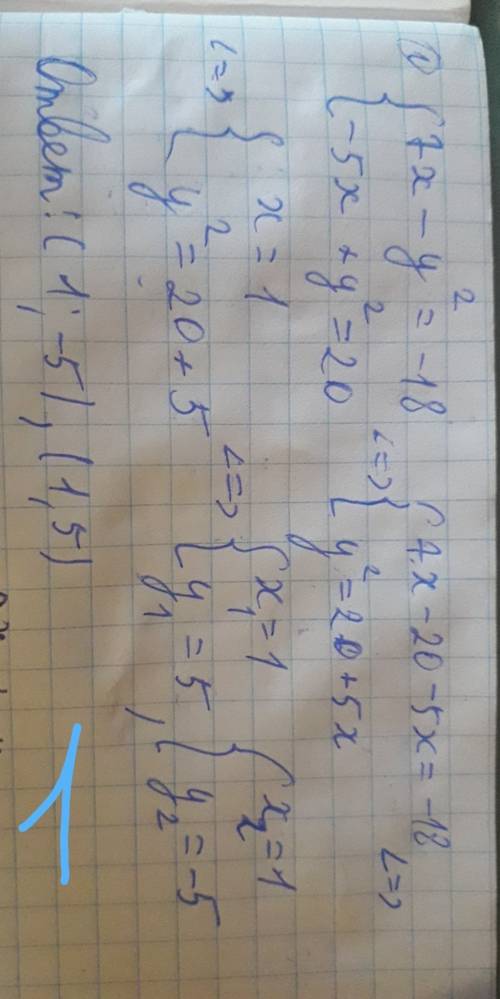 1) { 7x - y² = -18
{ -5x + y² = 20
<=> { 7x - 20 - 5x = -18
{ y² = 20 + 5x <=>
<=> { x = 1
{ y² = 20 + 5
<=> { x₁ = 1
{ y₁ = 5 ,
{ x₂ = 1
{ y₂ = -5
Ответ: (1; -5), (1, 5)
1